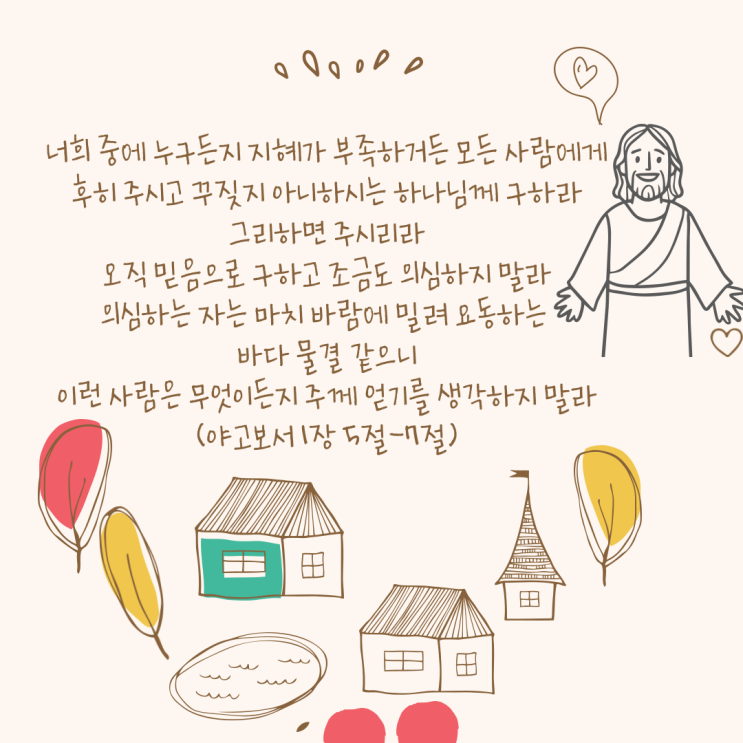 너희 중에 누구든지 지혜가 부족하거든 모든 사람에게
후히 주시고 꾸짖지 아니하시는 하나님께 구하라
그리하면 주시리라
오직 믿음으로 구하고 조금도 의심하지 말라
의심하는 자는 마치 바람에 밀려 요동하는
바다 물결 같으니
이런 사람은 무엇이든지 주께 얻기를 생각하지 말라
(야고보서 1장 5절-7절)